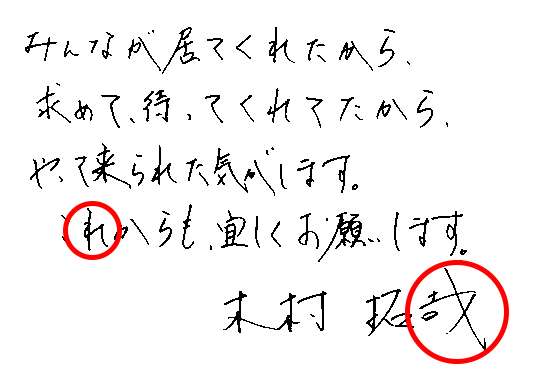 みんなが居てくれたから、
求めて、待ってくれてたから、
やって来られた気がします。
これからも、宜しくお願いします。
木村 拓哉